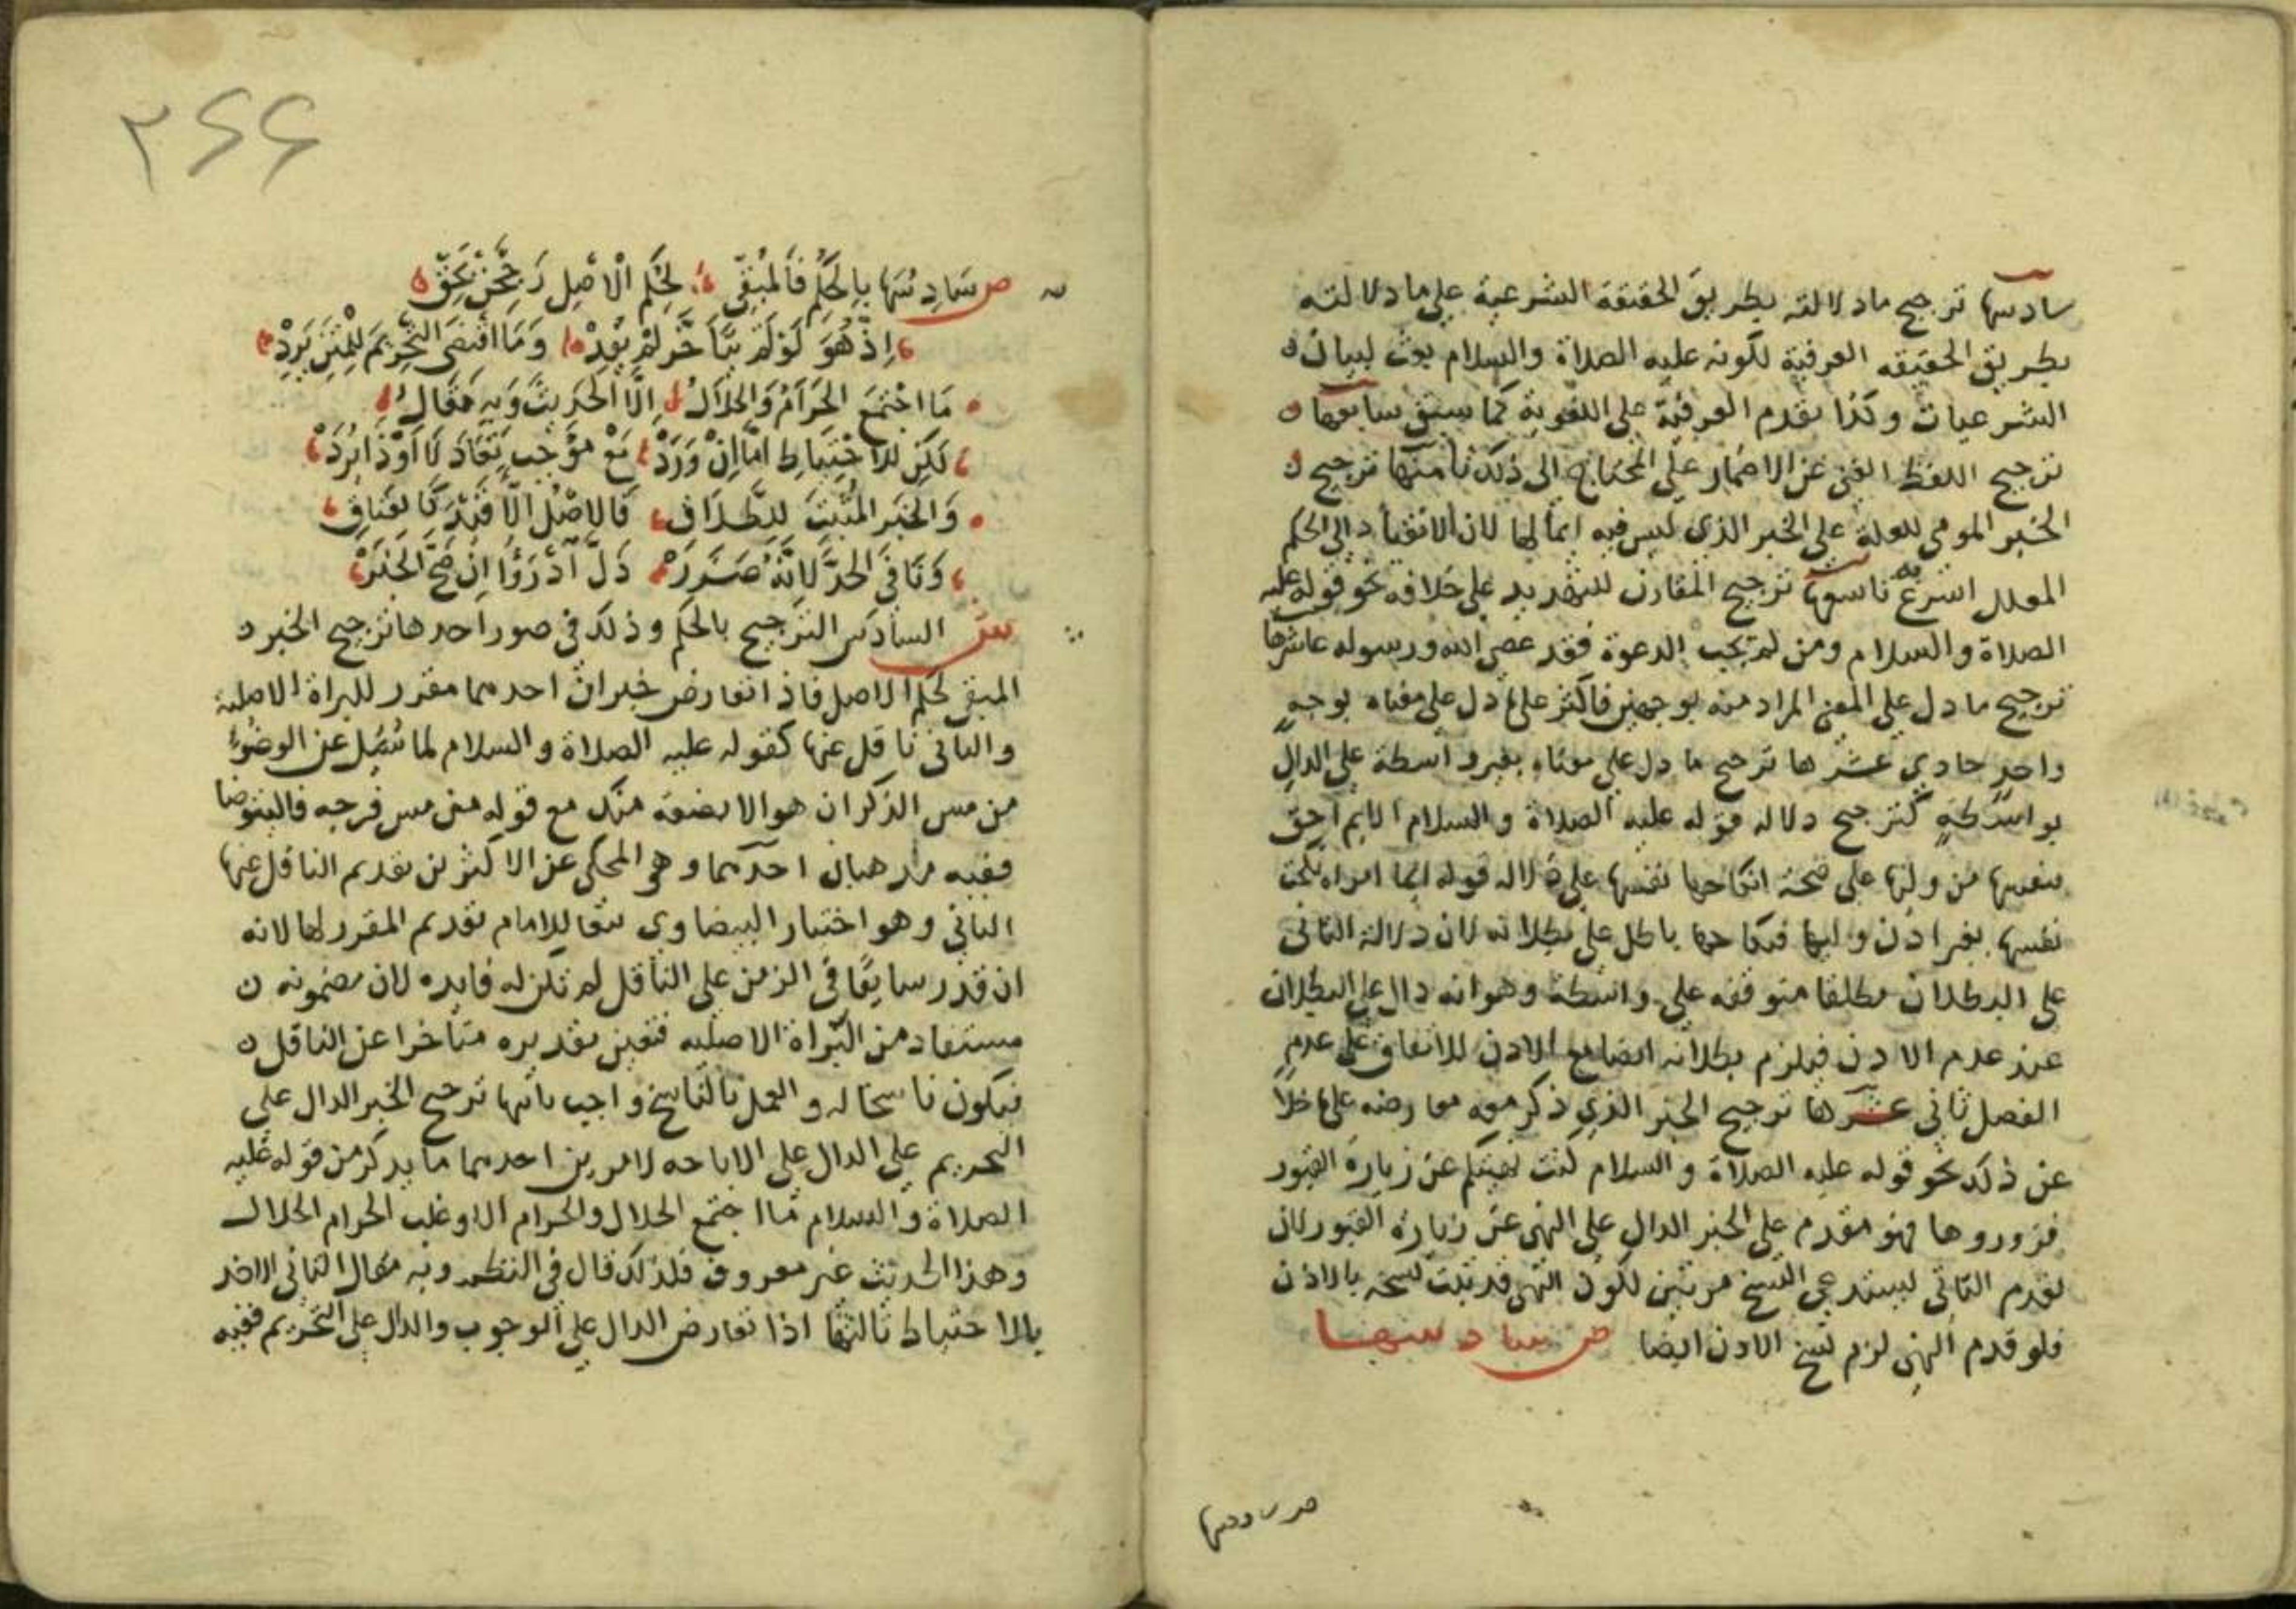 سادسها ترجيح ما دلالته بطريق الحقيقة الشرعية علي ما دلالته
بطريق الحقيقه العرفية لكونه عليه الصلاة والسلام بعث لبيان
الشرعيات وكذا تقدم العرفية علي اللغوية كما سبق سابعها
ترجيح اللفظ الغني عن الاضمار علي المحتاج الى ذلك ثامنها ترجيح
الخبر المومي للعلة علي الخبر الذي ليس فيه ايما لها لان الانقياد الي الحكم
المعلل اسرع تاسعها ترجيح المقارن للتهديد علي خلافه نحو قوله عليه
الصلاة والسلام ومن لم يجب الدعوة فقد عصى الله ورسوله عاشرها
ترجيح ما دل علي المعني المراد منه بوجهين فاكثر علي ما دل علي معناه بوجه
واحد حادي عشرها ترجيح ما دل علي معناه بغير واسطة علي الدال
بواسطة كترجيح دلاله قوله عليه الصلاة والسلام الايم احق
بنفسها من وليها علي صحة انكاحها نفسها علي دلاله قوله ايما امراه نكحت
نفسها بغير اذن وليها فنكاحها باطل علي بطلانه لان دلالة الثاني
علي البطلان مطلقا متوقفه علي واسطة وهو انه دال علي البطلان
عند عدم الاذن فيلزم بطلانه ايضا مع الاذن للاتفاق علي عدم
الفصل ثاني عشرها ترجيح الخبر الذي ذكر معه معارضه علي ما خلا
عن ذلك نحو قوله عليه الصلاة والسلام كنت نهيتكم عن زيارة القبور
فزوروها فهو مقدم علي الخبر الدال علي النهي عن زيارة القبور لان
تقدم الثاني ليستدعي النسخ مرتين لكون النهي قد ثبت نسخه بالاذن
فلو قدم النهي لزم نسخ الاذن ايضا ص سادسها
ص سادسها
٢٦٦
ص سَادِسُهَا بِالحُكْمِ فَالمُبْقِي لِحُكْمِ الْاَصْلِ رَجِّحْنْ بِحَقِّ
اِذْ هُوَ لَوْ لَمْ يَتَأَخَّرْ لَمْ يُفِدْ وَمَا اقْتَضَى التَّحْرِيمَ
مَا اجْتَمَعَ الحَرَامُ وَالحَلَالُ اِلَّا الحَدِيثَ وَبِهِ مَقَالُ
لَكِنْ للاحْتِيَاطِ امَّا اِنْ وَرَدْ مَعْ مُوْجِبٍ تَعَادَلَا
وَالخَبَرَ المُثْبِتَ لِلطَّلَاقِ
وَنَافِيَ الحَدِّ لِانَّهُ ضَرَرْ دَلَّ ادْرَؤُا اِنْ صَحَّ الخَبَرْ
ش السادس الترجيح بالحكم وذلك في صور احدها ترجيح الخبر
المبقي لحكم الاصل فاذا تعارض خبران احدهما مقرر للبراة الاصلية
والثاني ناقل عنها كقوله عليه الصلاة والسلام لما سُئِل عن الوضوء
من مس الذكر ان هو الا بضعة منك مع قوله من مس فرجه فاليتوضا
ففيه مذهبان احدهما وهو المحكي عن الاكثرين تقديم الناقل عنها
الثاني وهو اختيار البيضاوي تبعا للامام تقديم المقرر لها لانه
ان قدر سابقًا في الزمن علي الناقل لم تكن له فايده لان مضمونه
مستفاد من البراة الاصليه فتعين تقديره متأخرا عن الناقل
فيكون ناسخا له والعمل بالناسخ واجب ثانيها ترجيح الخبر الدال علي
التحريم علي الدال علي الاباحه لامرين احدهما ما يذكر من قوله عليه
الصلاة والسلام ما اجتمع الحلال والحرام الا وغلب الحرام الحلال
وهذا الحديث غير معروف فلذلك قال في النظم وبه مقال الثاني الاخذ
بالاحتياط ثالثها اذا تعارض الدال علي الوجوب والدال علي التحريم ففيه